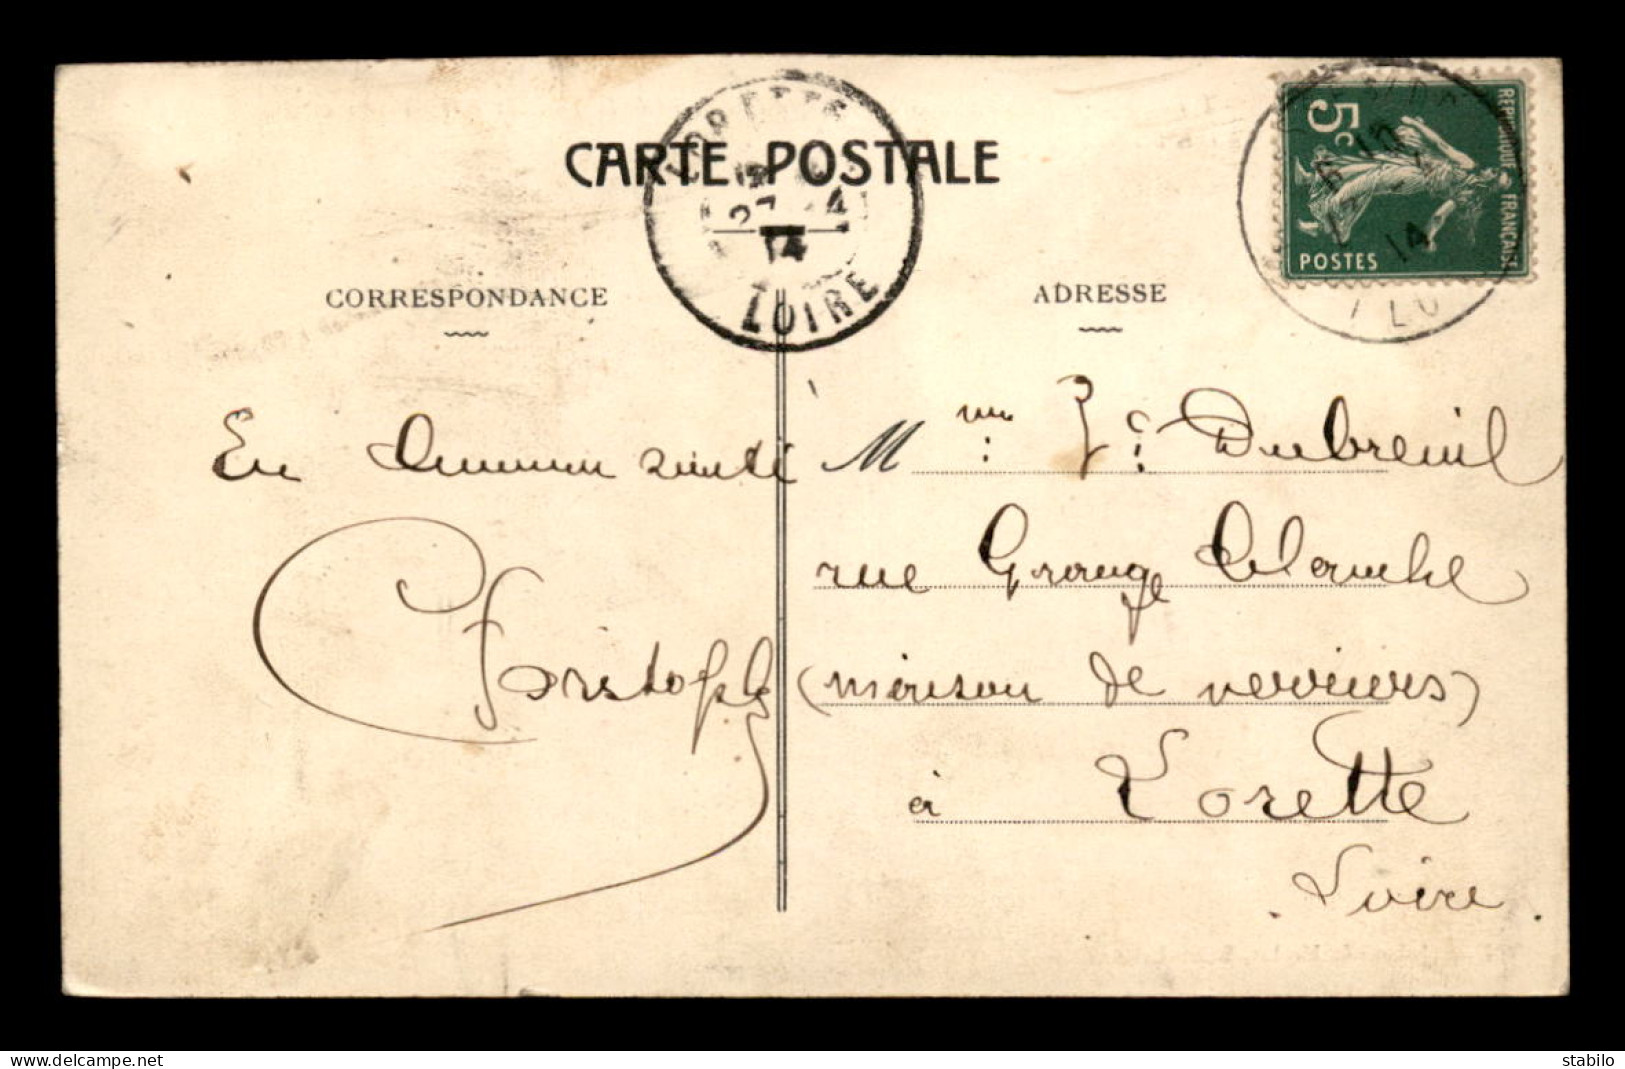 CARTE POSTALE
LORETTE
27 -4
14
LOIRE
5c
REPUBLIQUE FRANCAISE
POSTES
14
CORRESPONDANCE
ADRESSE
En
Christophe
Mme Dubreuil
rue Grange
(maison de verriers)
à Lorette
Loire
delcampe.net
stabilo